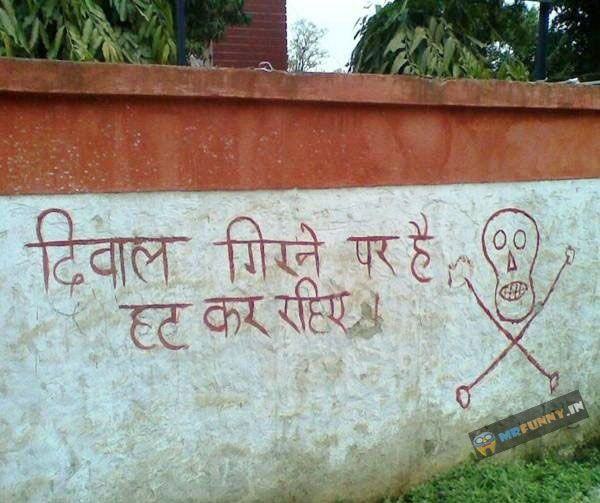 दिवाल गिरने पर है
हट कर रहिए।
MRFUNNY.IN